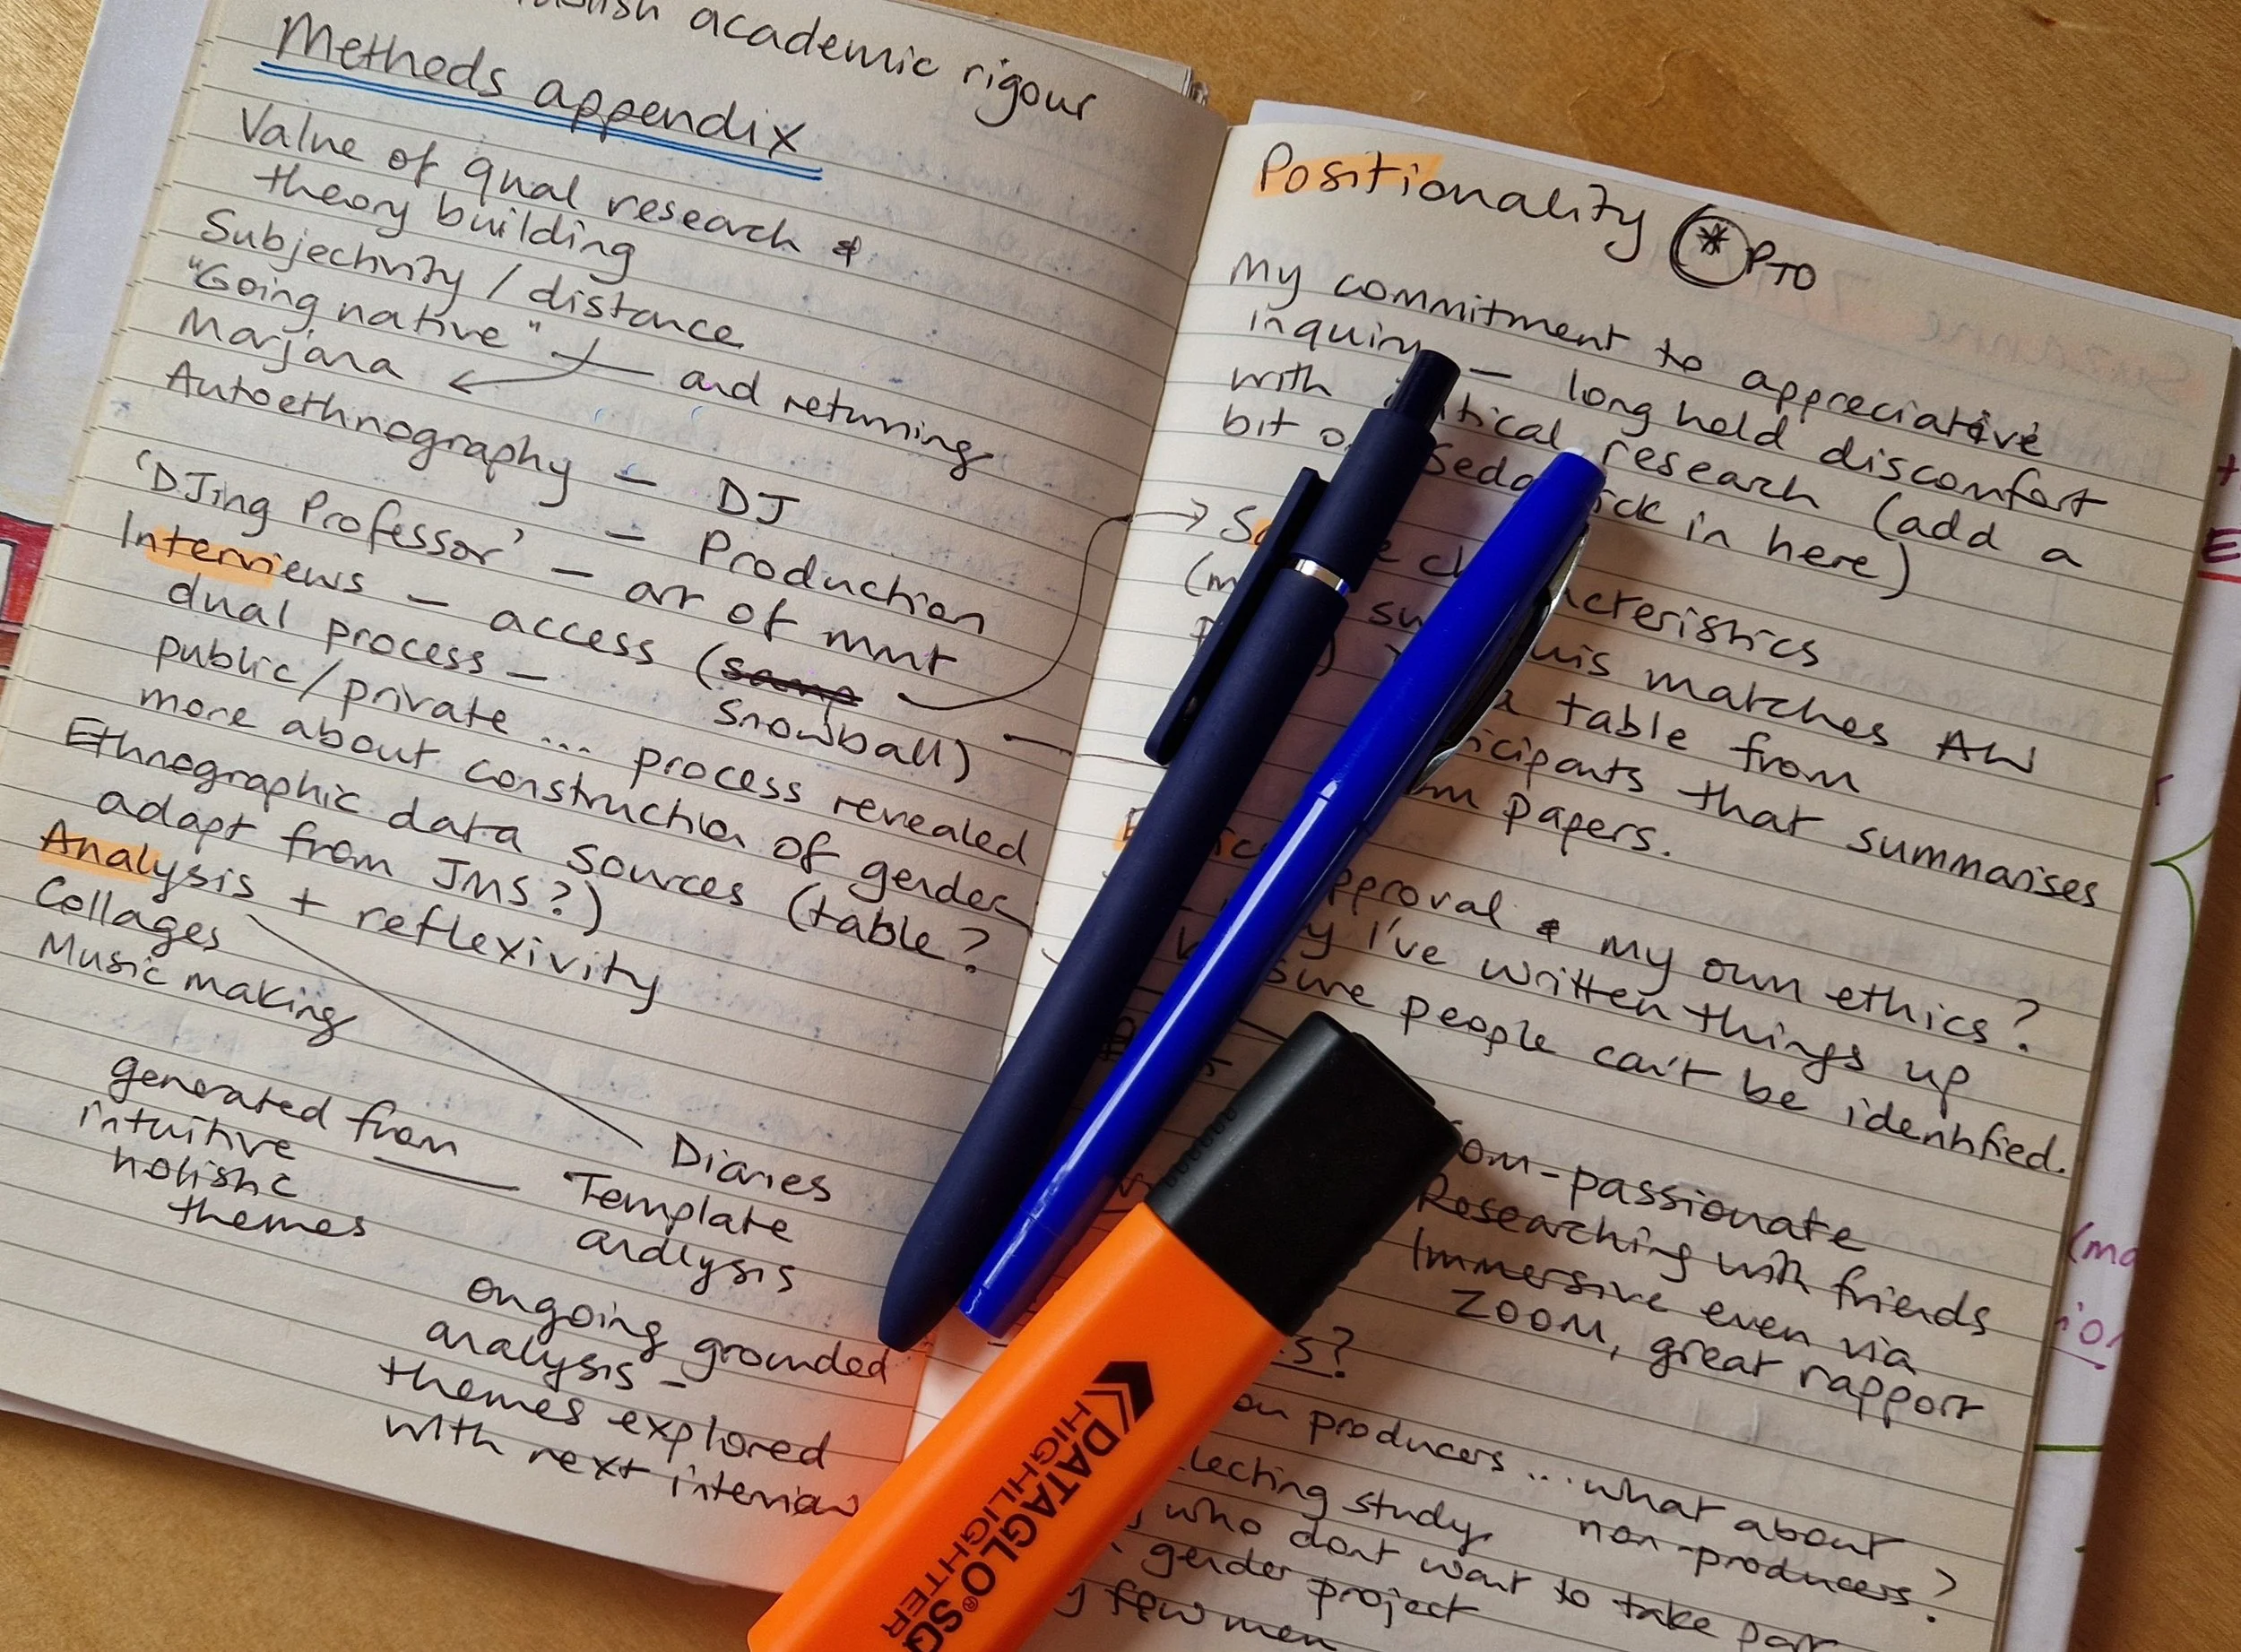 academic rigour
Methods appendix
Value of qual research &
theory building
Subjectivity / distance
"Going native" — and returning
Marjana
Autoethnography — DJ
— Production
'DJing Professor' — art of mnt
Interviews — access (samp
snowball)
dual process —
public/private ... process revealed
more about construction of gender
Ethnographic data sources (table?
adapt from JMS?)
Analysis + reflexivity
Collages
Music making
generated from
intuitive
holistic
themes
Diaries
Template
analysis
ongoing grounded
analysis —
themes explored
with next interview
Positionality * PTO
My commitment to appreciative
inquiry — long held discomfort
with critical research (add a
bit of Sedgwick in here)
characteristics
this matches AW
a table from
participants that summarises
papers.
approval & my own ethics?
I've written things up
people can't be identified.
Com-passionate
Researching with friends
Immersive even via
ZOOM, great rapport
on producers ... what about
non-producers?
study
who dont want to take part
gender project
few men
DATAGLO® SG
HIGHLIGHTER